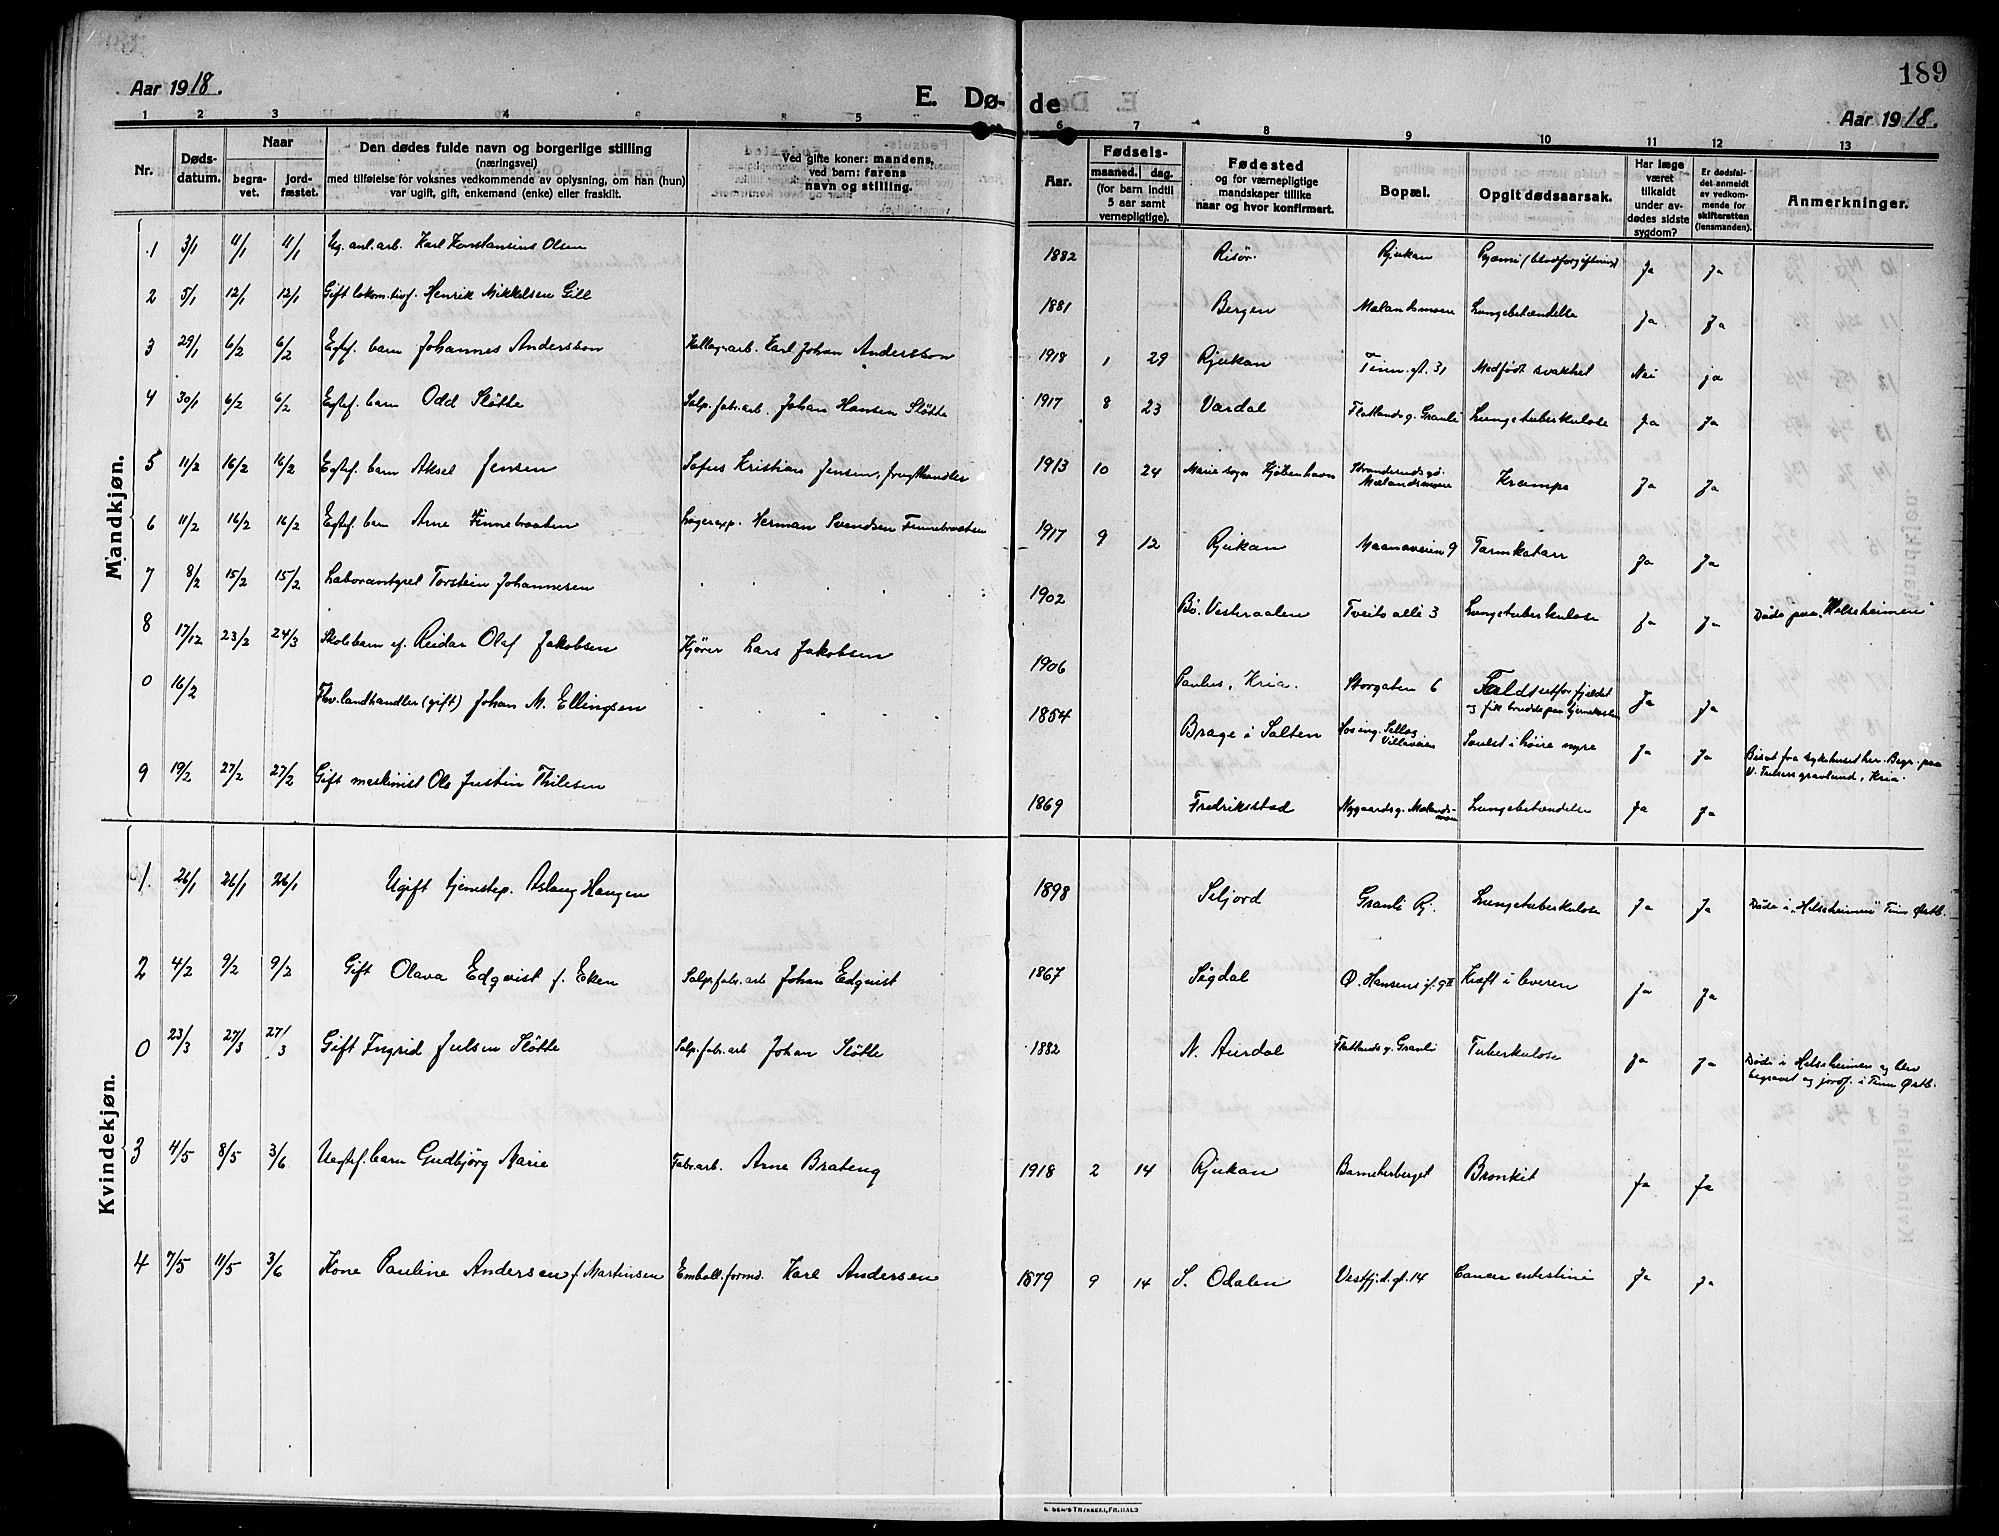 189
Aar 1918.
E. Døde
Aar 1918.
1 2 3 4 5 6 7 8 9 10 11 12 13
Nr.
Døds-
datum.
Naar
begra-
vet.
jord-
fæstet.
Den dødes fulde navn og borgerlige stilling
(næringsvei)
med tilføielse for voksnes vedkommende av oplysning, om han (hun)
var ugift, gift, enkemand (enke) eller fraskilt.
Ved gifte koner: mandens,
ved barn: farens
navn og stilling.
Aar.
Fødsels-
maaned. dag.
(for barn indtil
5 aar samt
vernepligtige).
Fødested
og for værnepligtige
mandskaper tillike
naar og hvor konfirmert.
Bopæl.
Opgit dødsaarsak.
Har læge
været
tilkaldt
under av-
dødes sidste
sygdom?
Er dødsfal-
det anmeldt
av vedkom-
mende for
skifteretten
(lensmanden).
Anmerkninger.
Mandkjøn.
1 3/1 11/1 11/1 Ug. anl. arb. Karl Konstansius Olsen 1882 Risør Rjukan Pyæmi (blodforgiftning) Ja Ja
2 5/1 12/1 12/1 Gift lokom. Henrik Mikkelsen Gill 1881 Bergen Mælandsmoen Lungebetændelse Ja Ja
3 29/1 6/2 6/2 Egtef. barn Johannes Andersson arb. Karl Johan Andersson 1918 1 29 Rjukan Tinn. gt. 31 Medfødt svakhet Nei ja
4 30/1 6/2 6/2 Egtef. barn Odd Sløtte Salp. fabr. arb. Johan Hansen Sløtte 1917 8 23 Vardal Flatlands g. Granli Lungetuberkulose Ja Ja
5 11/2 16/2 16/2 Egtef. barn Aksel Jensen Sofus Kristian Jensen, frugthandler 1913 10 24 Maria sogn Kjøbenhavn
Mælandsmoen Krampe Ja Ja
6 11/2 16/2 16/2 Egtef. barn Arne Finnebraaten Lagerexp. Herman Svendsen Finnebraaten 1917 9 12 Rjukan Maanaveien 9 Tarmkatarr Ja Ja
7 8/2 15/2 15/2 Laborantgret Torstein Johannesen 1902 Bø. Vesteraalen Tveito alle 3 Lungetuberkulose Ja Ja Døde paa "Helseheimen"
8 17/12 23/2 24/3 Skolebarn ef. Reidar Olaf Jakobsen Kjører Lars Jakobsen 1906 Paulus, Kria. Storgaten 6 Faldt utfor fjeldet
og fik brudd paa hjernekassen Ja Ja
0 16/2 Fhv. landhandler (gift) Johan M. Ellingsen 1854 Brage i Salten Hos ing. Selles
Villaveien Svulst i høire nyre Ja Ja Bisat fra sykehuset her. Begr. paa
V. gravlund, Kria.
9 19/2 27/2 27/2 Gift maskinist Ole Justin Thilesen 1869 Fredriksstad Nygaards g. Mælands-
moen Lungebetændelse Ja Ja
Kvindekjøn.
1. 26/1 26/1 26/1 Ugift tjenestep. Aslaug Haugen 1898 Seljord Granli Rj. Lungetuberkulose Ja Ja Døde i "Helseheimen" Tinn Østb.
2 4/2 9/2 9/2 Gift Olava Edqvist f. Eken Salp. fabr. arb Johan Edqvist 1867 Sigdal O. Hansens Kræft i leveren Ja Ja
0 23/3 27/3 27/3 Gift Ingrid Julsen Sløtte Salp. fabr. arb Johan Sløtte 1882 N. Aurdal Flatlands g. Granli Tuberkulose Ja Ja Døde i Helseheimen og blev
begravet og jordf. i Tinn Østb.
3 4/5 8/5 3/6 Uegtef. barn Gudbjørg Marie Fabr. arb. Arne Brateng 1918 2 14 Rjukan Barneherberget Bronkit Ja Ja
4 7/5 11/5 3/6 Kone Pauline Andersen f. Martinsen Emball. formd. Karl Andersen 1879 9 14 S. Odalen Vestfj.d. gt. 14 Cancer intestini Ja Ja